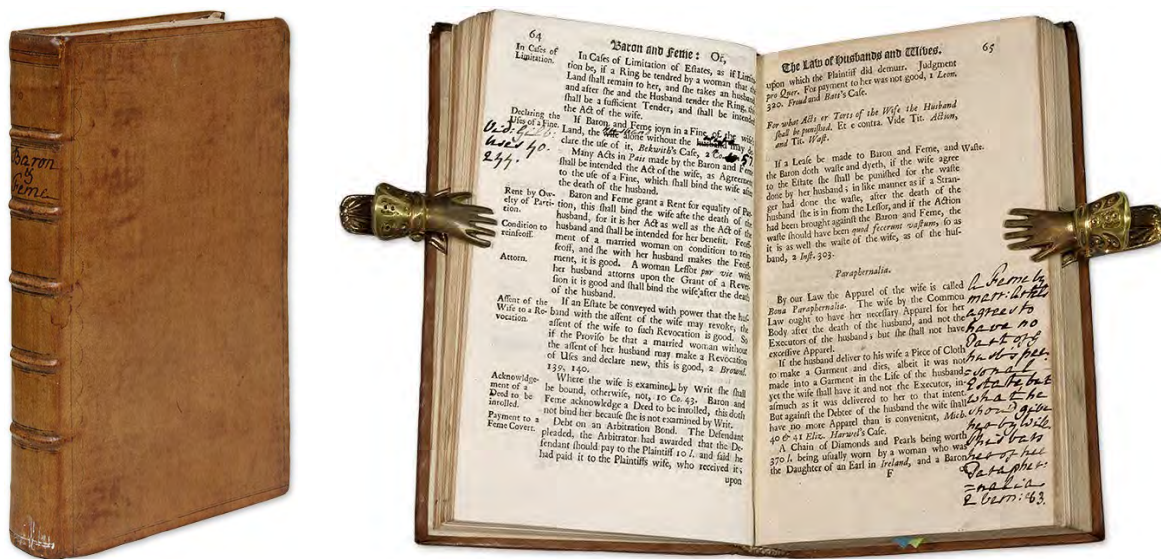 Baron
&
Feme
64
Baron and Feme: Or,
In Caſes of
Limitation.
In Caſes of Limitation of Eſtates, as if Limita-
tion be, if a Ring be tendred by a woman that the
Land ſhall remain to her, and ſhe takes an husband
and after ſhe and the Husband tender the Ring, this
ſhall be a ſufficient Tender, and ſhall be intended
the Act of the wife.
Declaring the
Uſes of a Fine.
If Baron and Feme joyn in a Fine of the wifes
Land, the wife alone without the husband may de-
clare the uſe of it, Bekwith's Caſe, 2 Co. 57.
Uses 40.
244.
Many Acts in Pais made by the Baron and Feme
ſhall be intended the Act of the wife, as Agreement
to the uſe of a Fine, which ſhall bind the wife after
the death of the husband.
Rent by Ow-
elty of Parti-
tion.
Baron and Feme grant a Rent for equality of Par-
tition, this ſhall bind the wife afte the death of the
husband, for it is her Act as well as the Act of the
husband and ſhall be intended for her benefit. Feoff-
Condition to
reinfeoff.
ment of a married woman on condition to rein-
feoff, and ſhe with her husband makes the Feoff-
ment, it is good. A woman Leſſor pur vie with
Attorn.
her husband attorns upon the Grant of a Rever-
ſion it is good and ſhall bind the wife after the death
of the husband.
Aſſent of the
Wife to a Re-
vocation.
If an Eſtate be conveyed with power that the huſ-
band with the aſſent of the wife may revoke, the
aſſent of the wife to ſuch Revocation is good. So
if the Proviſo be that a married woman without
the aſſent of her husband may make a Revocation
of Uſes and declare new, this is good, 2 Brownl.
139, 140.
Acknowledge-
ment of a
Deed to be
inrolled.
Where the wife is examined by Writ ſhe ſhall
be bound, otherwiſe, not, 10 Co. 43. Baron and
Feme acknowledge a Deed to be inrolled, this doth
not bind her becauſe ſhe is not examined by Writ.
Payment to a
Feme Covert.
Debt on an Arbitration Bond. The Defendant
pleaded, the Arbitrator had awarded that the De-
fendant ſhould pay to the Plaintiff 10 l. and ſaid he
had paid it to the Plaintiffs wife, who received it;
upon
The Law of Husbands and Wives.
65
upon which the Plaintiff did demurr. Judgment
pro Quer. For payment to her was not good, 1 Leon.
320. Froud and Batt's Caſe.
For what Acts or Torts of the Wife the Husband
ſhall be puniſhed. Et e contra. Vide Tit. Action,
and Tit. Waſt.
If a Leaſe be made to Baron and Feme, and
Waſte.
the Baron doth waſte and dyeth, if the wife agree
to the Eſtate ſhe ſhall be puniſhed for the waſte
done by her husband; in like manner as if a Stran-
ger had done the waſte, after the death of the
husband ſhe is in from the Leſſor, and if the Action
had been brought againſt the Baron and Feme, the
waſte ſhould have been quod fecerunt vaſtum, ſo as
it is as well the waſte of the wife, as of the huſ-
band, 2 Inſt. 303.
Paraphernalia.
By our Law the Apparel of the wife is called
Bona Paraphernalia. The wife by the Common
Law ought to have her neceſſary Apparel for her
Body after the death of the husband, and not the
Executors of the husband; but ſhe ſhall not have
exceſſive Apparel.
If the husband deliver to his wife a Piece of Cloth
to make a Garment and dies, albeit it was not
made into a Garment in the Life of the husband,
yet the wife ſhall have it and not the Executor, in-
aſmuch as it was delivered to her to that intent.
But againſt the Debtee of the husband the wife ſhall
have no more Apparel than is convenient, Mich.
40 & 41 Eliz. Harwel's Caſe.
A Chain of Diamonds and Pearls being worth
370 l. being uſually worn by a woman who was
the Daughter of an Earl in Ireland, and a Baron
F
a Feme by
agrees to
have no
Part of
husbs per-
=sonal
Estate but
what he
shou'd give
her by will
this bars
her of her
Parapher-
=nalia
2 Vern: 83.